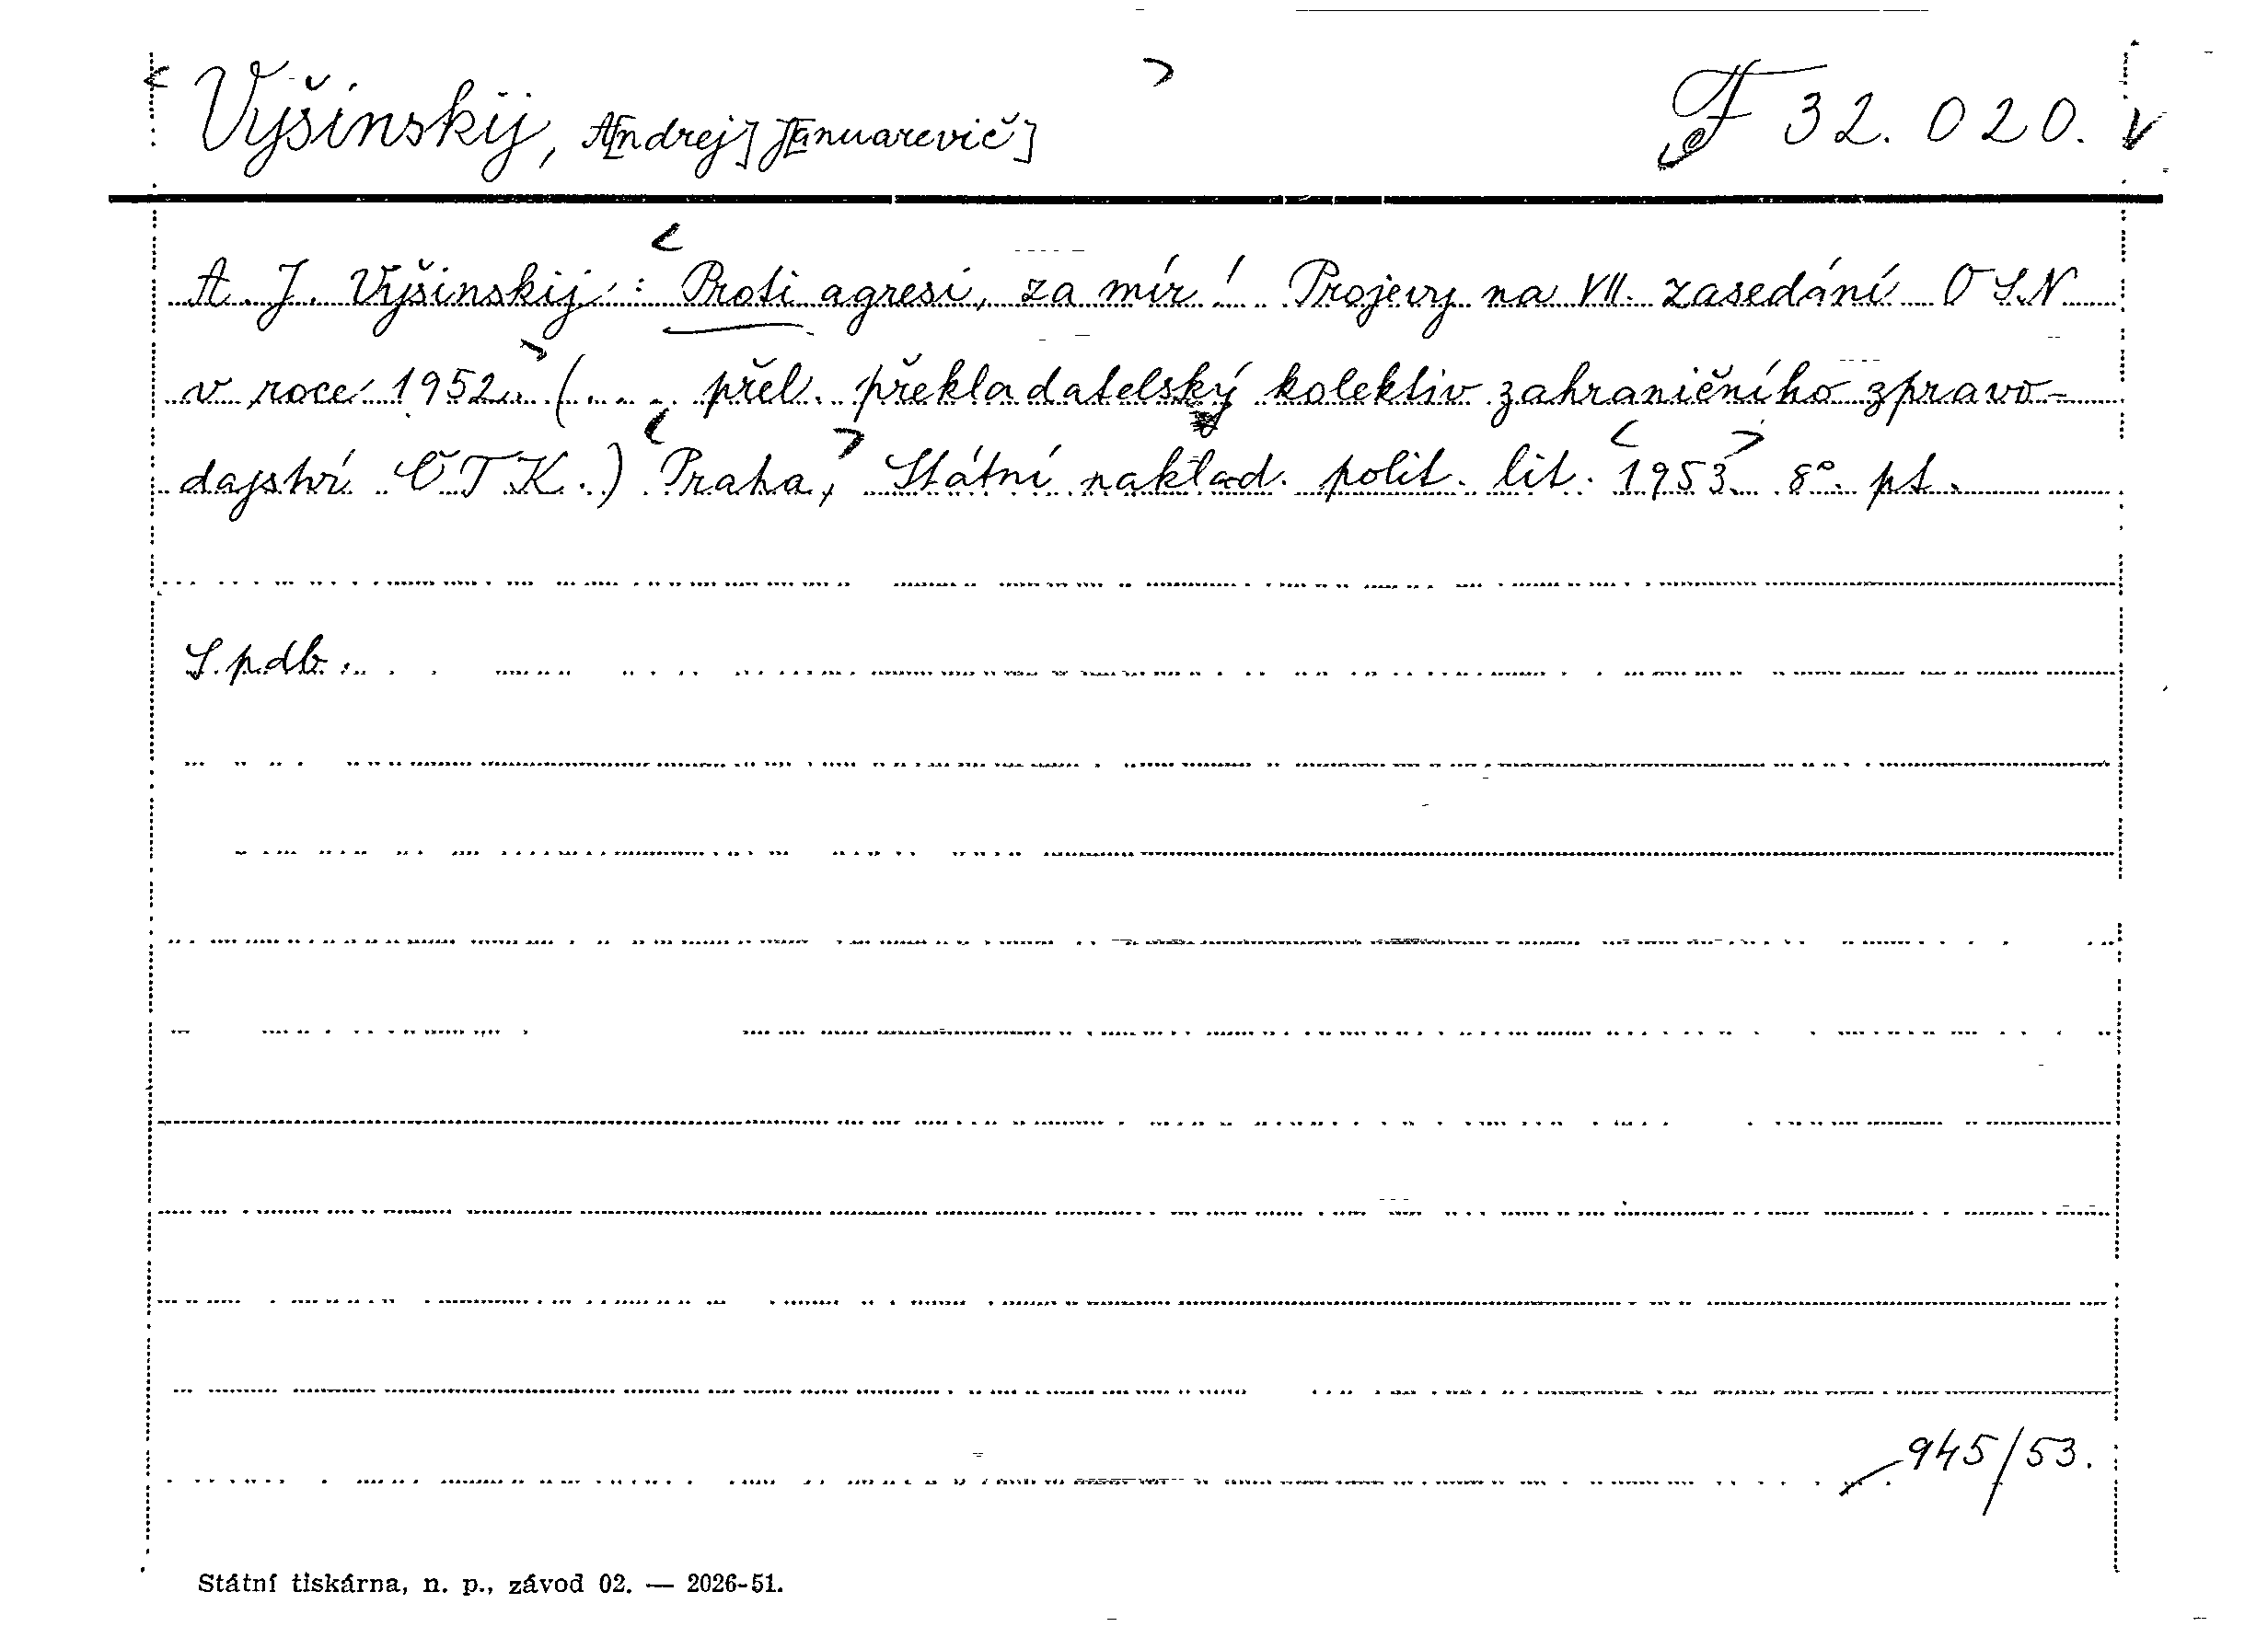 Vyšinskij, A[ndrej] J[anuarevič] F 32.020.
A. J. Vyšinskij: Proti agresi, za mír! Projevy na VII. zasedání OSN
v roce 1952. (... přel. překladatelský kolektiv zahraničního zpravo-
dajství ČTK.) Praha, Státní naklad. polit. lit. 1953. 8°. pt.
S. pdb.
945/53.
Státní tiskárna, n. p., závod 02. — 2026-51.